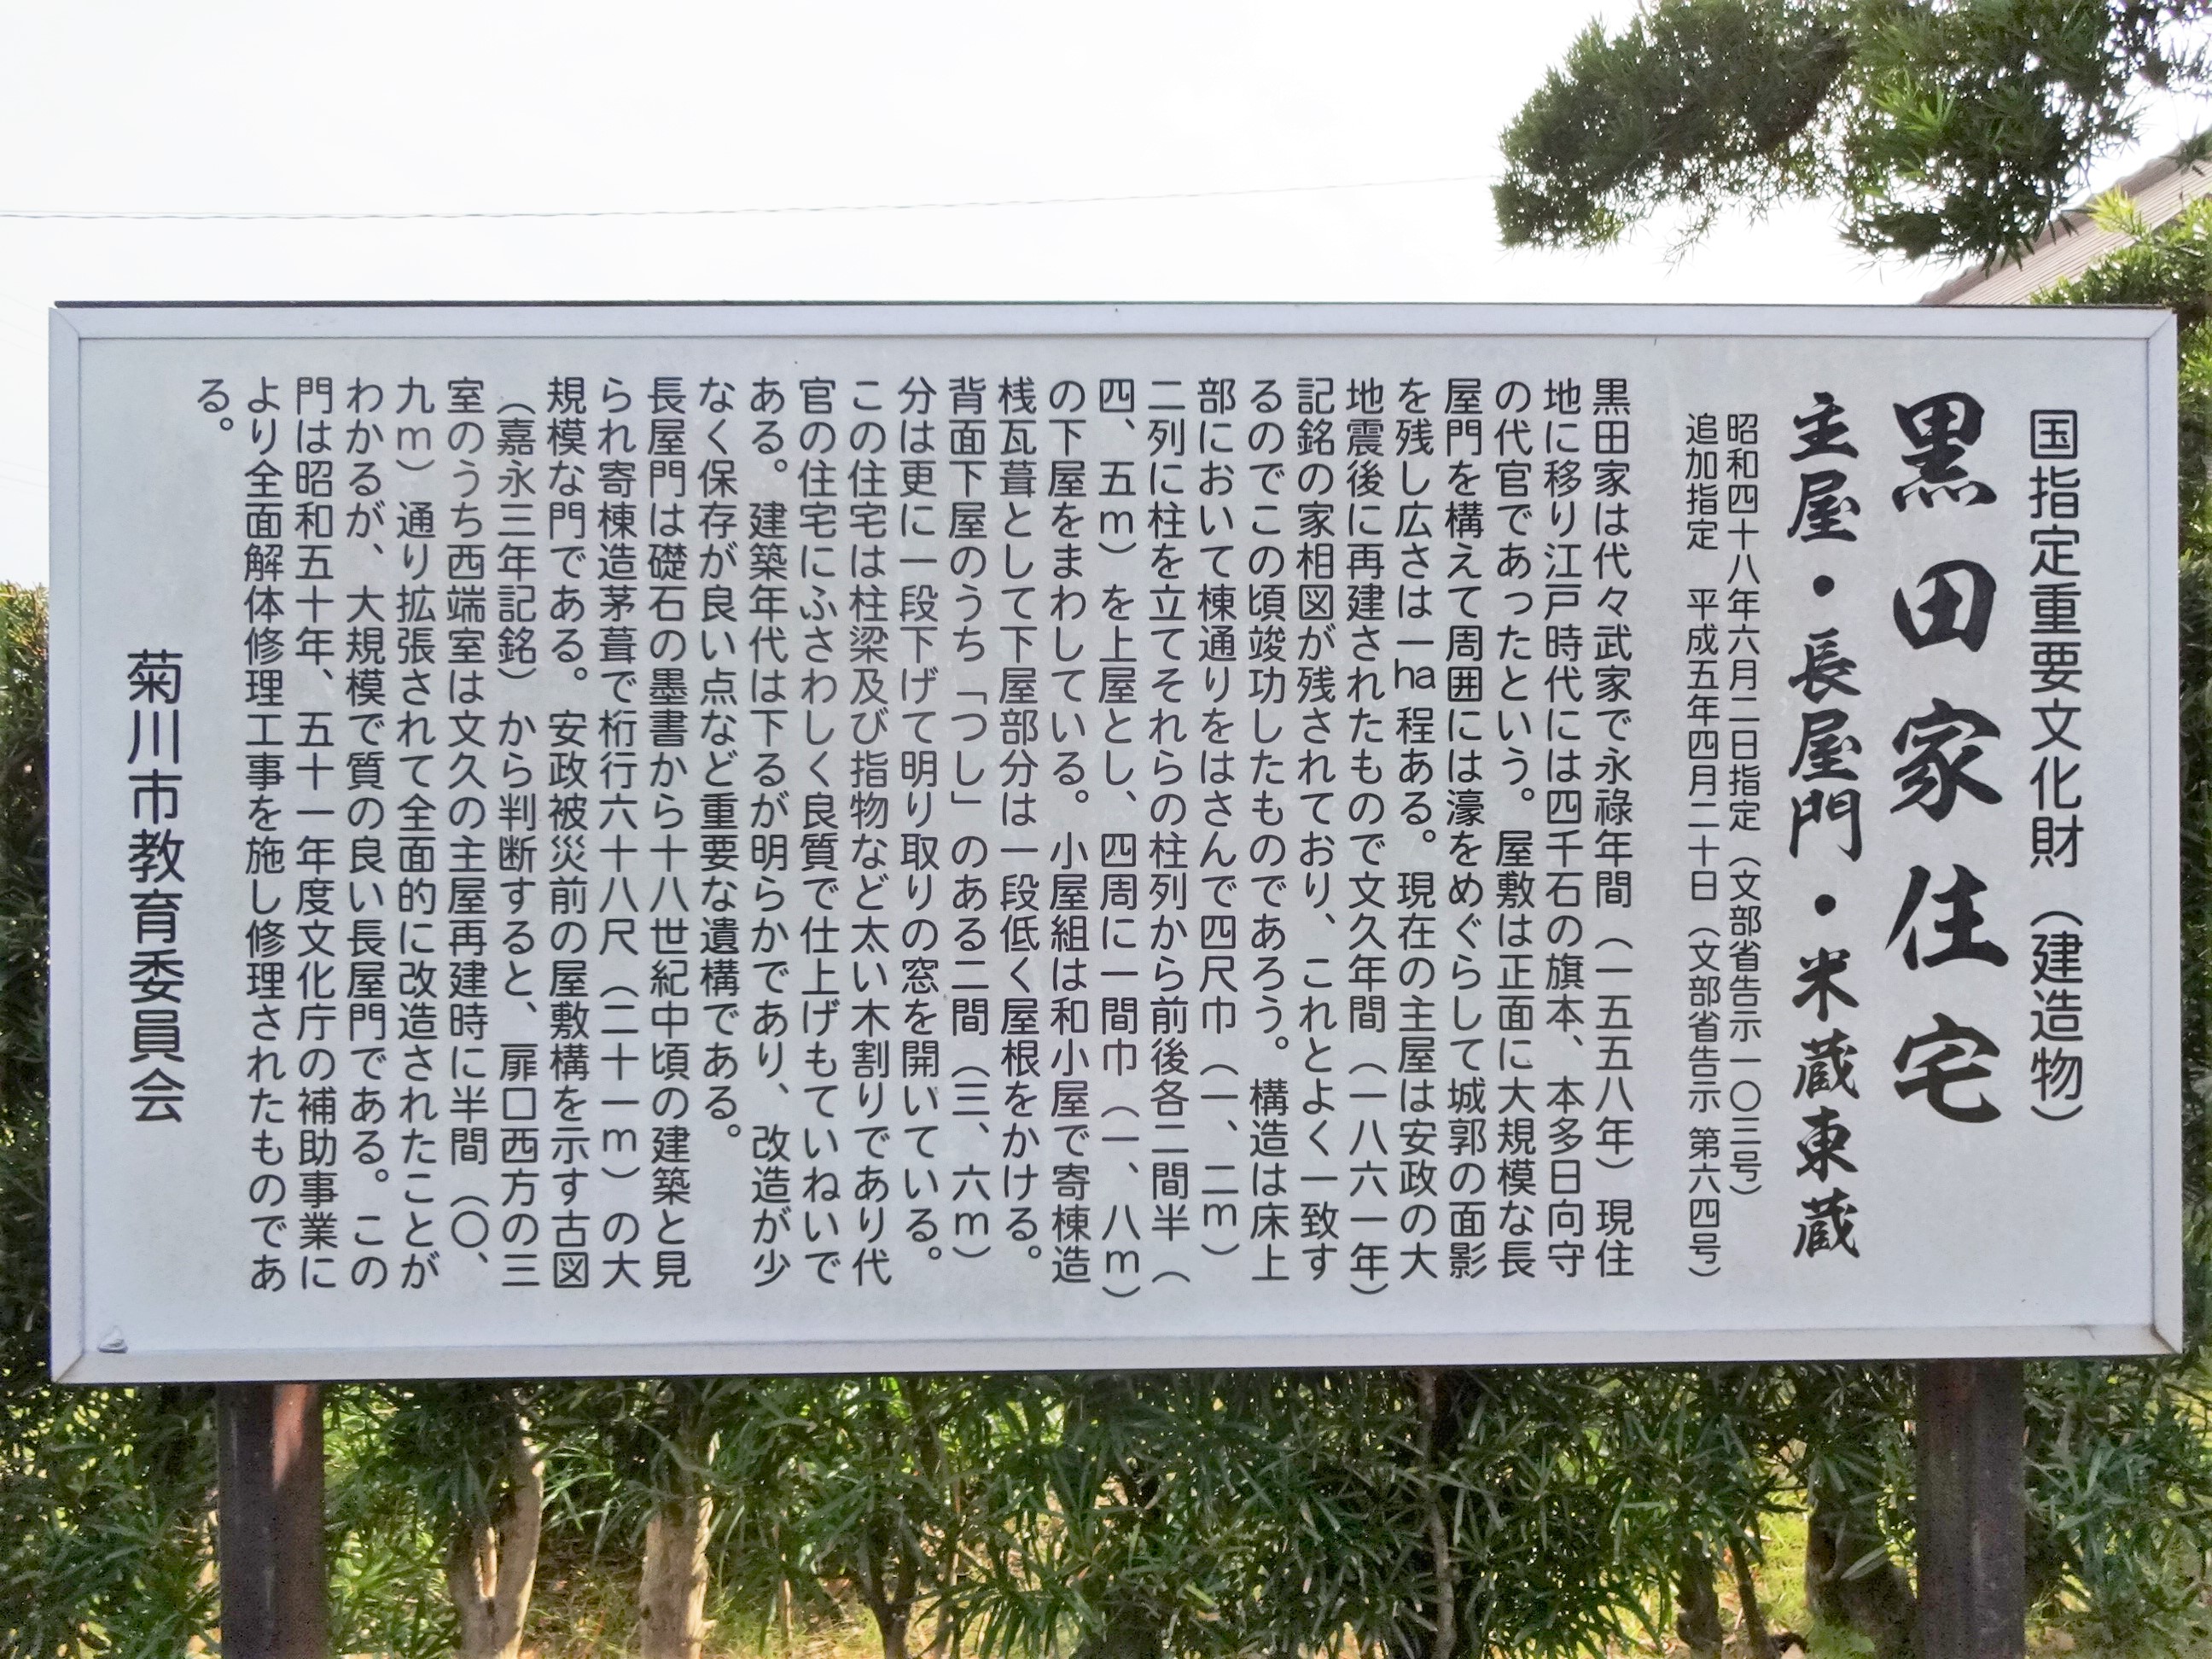 国指定重要文化財（建造物）
黒田家住宅
主屋・長屋門・米蔵東蔵
昭和四十八年六月二日指定（文部省告示一〇三号）
追加指定　平成五年四月二十日（文部省告示 第六四号）
黒田家は代々武家で永祿年間（一五五八年）現住
地に移り江戸時代には四千石の旗本、本多日向守
の代官であったという。屋敷は正面に大規模な長
屋門を構えて周囲には濠をめぐらして城郭の面影
を残し広さは一ha程ある。現在の主屋は安政の大
地震後に再建されたもので文久年間（一八六一年）
記銘の家相図が残されており、これとよく一致す
るのでこの頃竣功したものであろう。構造は床上
部において棟通りをはさんで四尺巾（一、二m）
二列に柱を立てそれらの柱列から前後各二間半（
四、五m）を上屋とし、四周に一間巾（一、八m）
の下屋をまわしている。小屋組は和小屋で寄棟造
桟瓦葺として下屋部分は一段低く屋根をかける。
背面下屋のうち「つし」のある二間（三、六m）
分は更に一段下げて明り取りの窓を開いている。
この住宅は柱梁及び指物など太い木割りであり代
官の住宅にふさわしく良質で仕上げもていねいで
ある。建築年代は下るが明らかであり、改造が少
なく保存が良い点など重要な遺構である。
長屋門は礎石の墨書から十八世紀中頃の建築と見
られ寄棟造茅葺で桁行六十八尺（二十一m）の大
規模な門である。安政被災前の屋敷構を示す古図
（嘉永三年記銘）から判断すると、扉口西方の三
室のうち西端室は文久の主屋再建時に半間（〇、
九m）通り拡張されて全面的に改造されたことが
わかるが、大規模で質の良い長屋門である。この
門は昭和五十年、五十一年度文化庁の補助事業に
より全面解体修理工事を施し修理されたものであ
る。
菊川市教育委員会